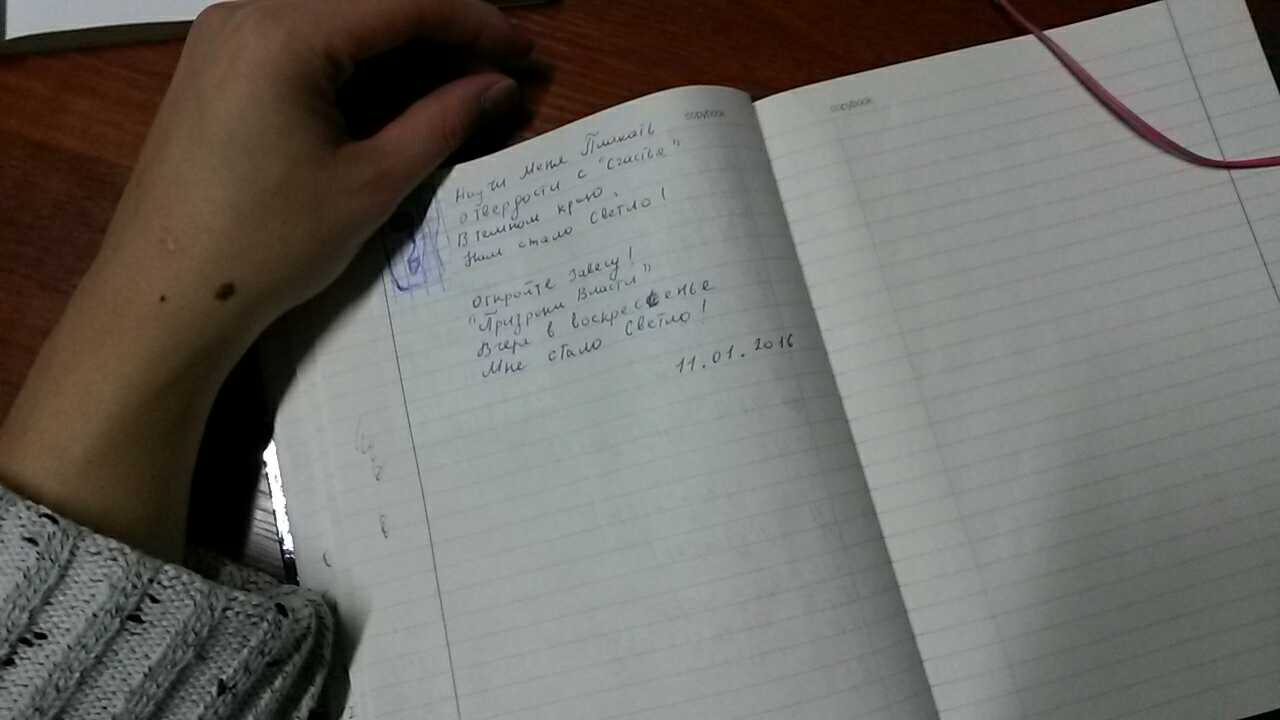 copybook
copybook
Научи меня Плакать
отвердости с "Счастье"
В темном краю,
Нам стало Светло!
Откройте Завесу!
"Призраки Власти"
Вчера в воскресенье
Мне стало Светло!
11.01.2016